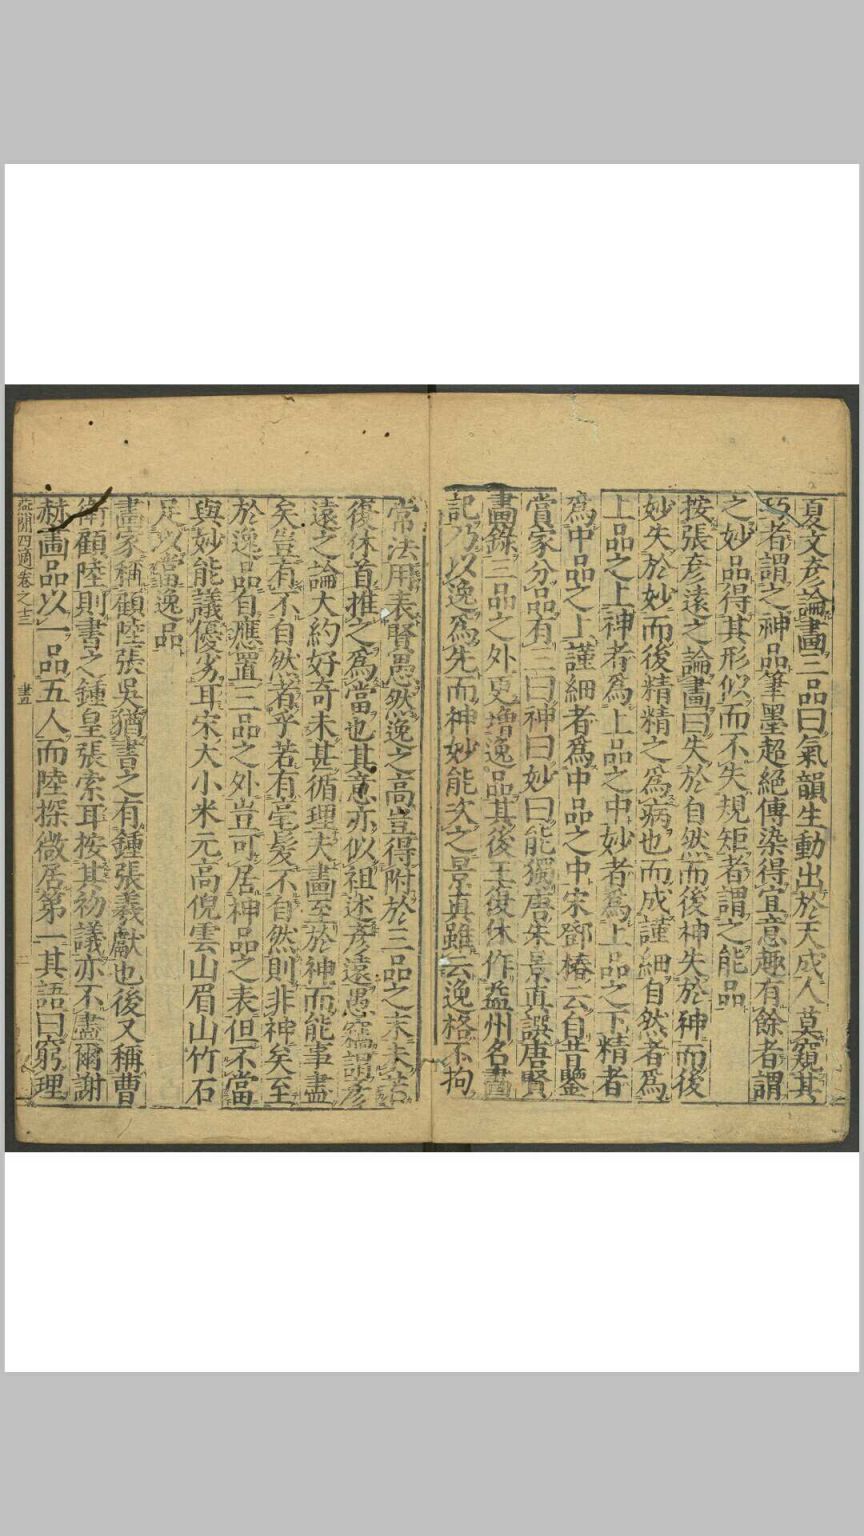 夏文彥論畫三品曰氣韻生動出於天成人莫窺其
巧者謂之神品筆墨超絕傳染得宜意趣有餘者謂
之妙品得其形似而不失規矩者謂之能品
按張彥遠之論畫曰失於自然而後神失於神而後
妙失於妙而後精精之爲病也而成謹細自然者爲
上品之上神者爲上品之中妙者爲上品之下精者
爲中品之上謹細者爲中品之中宋鄧椿云自昔鑒
賞家分品有三曰神曰妙曰能獨唐朱景真譔唐賢
畫錄三品之外更增逸品其後王復休作益州名畫
記乃以逸爲先而神妙能次之景真雖云逸格不拘
常法用表賢愚然逸之高豈得附於三品之末未若
復休首推之爲當也其意亦似祖述彥遠愚竊謂彥
遠之論大約好奇未甚循理夫畫至於神而能事盡
矣豈有不自然者乎若有毫髮不自然則非神矣至
於逸品自應置三品之外豈可居神品之表但不當
與妙能議優劣耳宋大小米元高倪雲山眉山竹石
足以當逸品
畫家稱顧陸張吳猶書之有鍾張羲獻也後又稱曹
衛顧陸則書之鍾皇張索耳按其初議亦不盡爾謝
赫畫品以一品五人而陸探微居第一其語曰窮理
燕閒四適卷之十三 書五